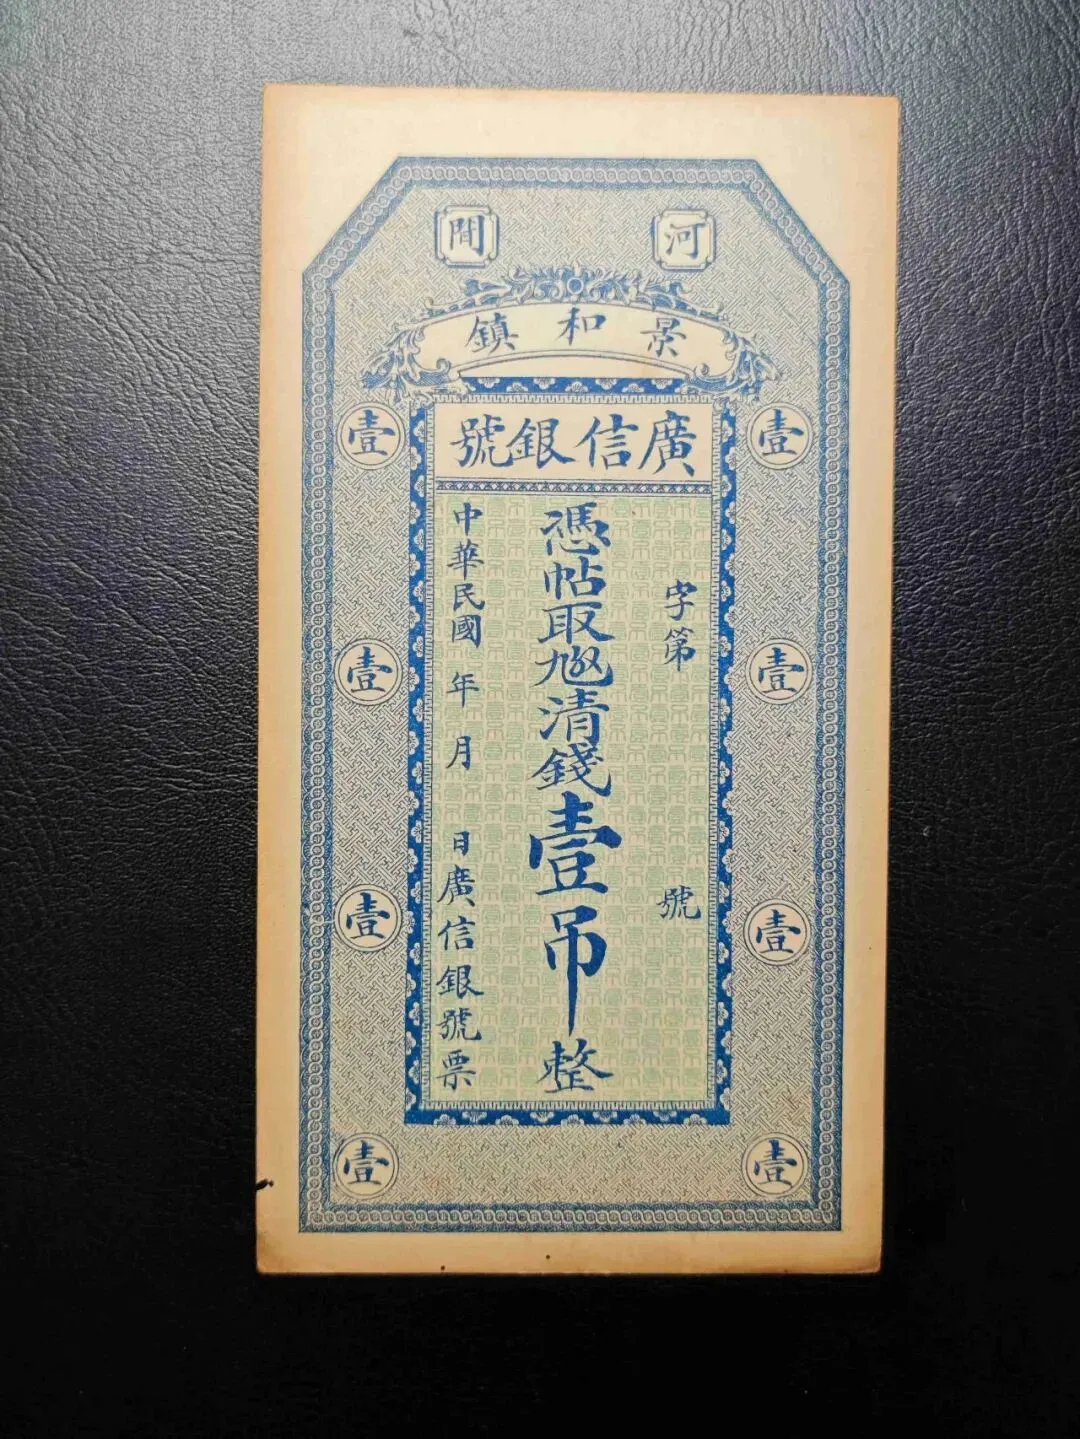 河間
景和鎮
廣信銀號
字第 號
憑帖取清錢壹吊整
中華民國 年 月 日廣信銀號票
壹
壹
壹
壹
壹
壹
壹
壹